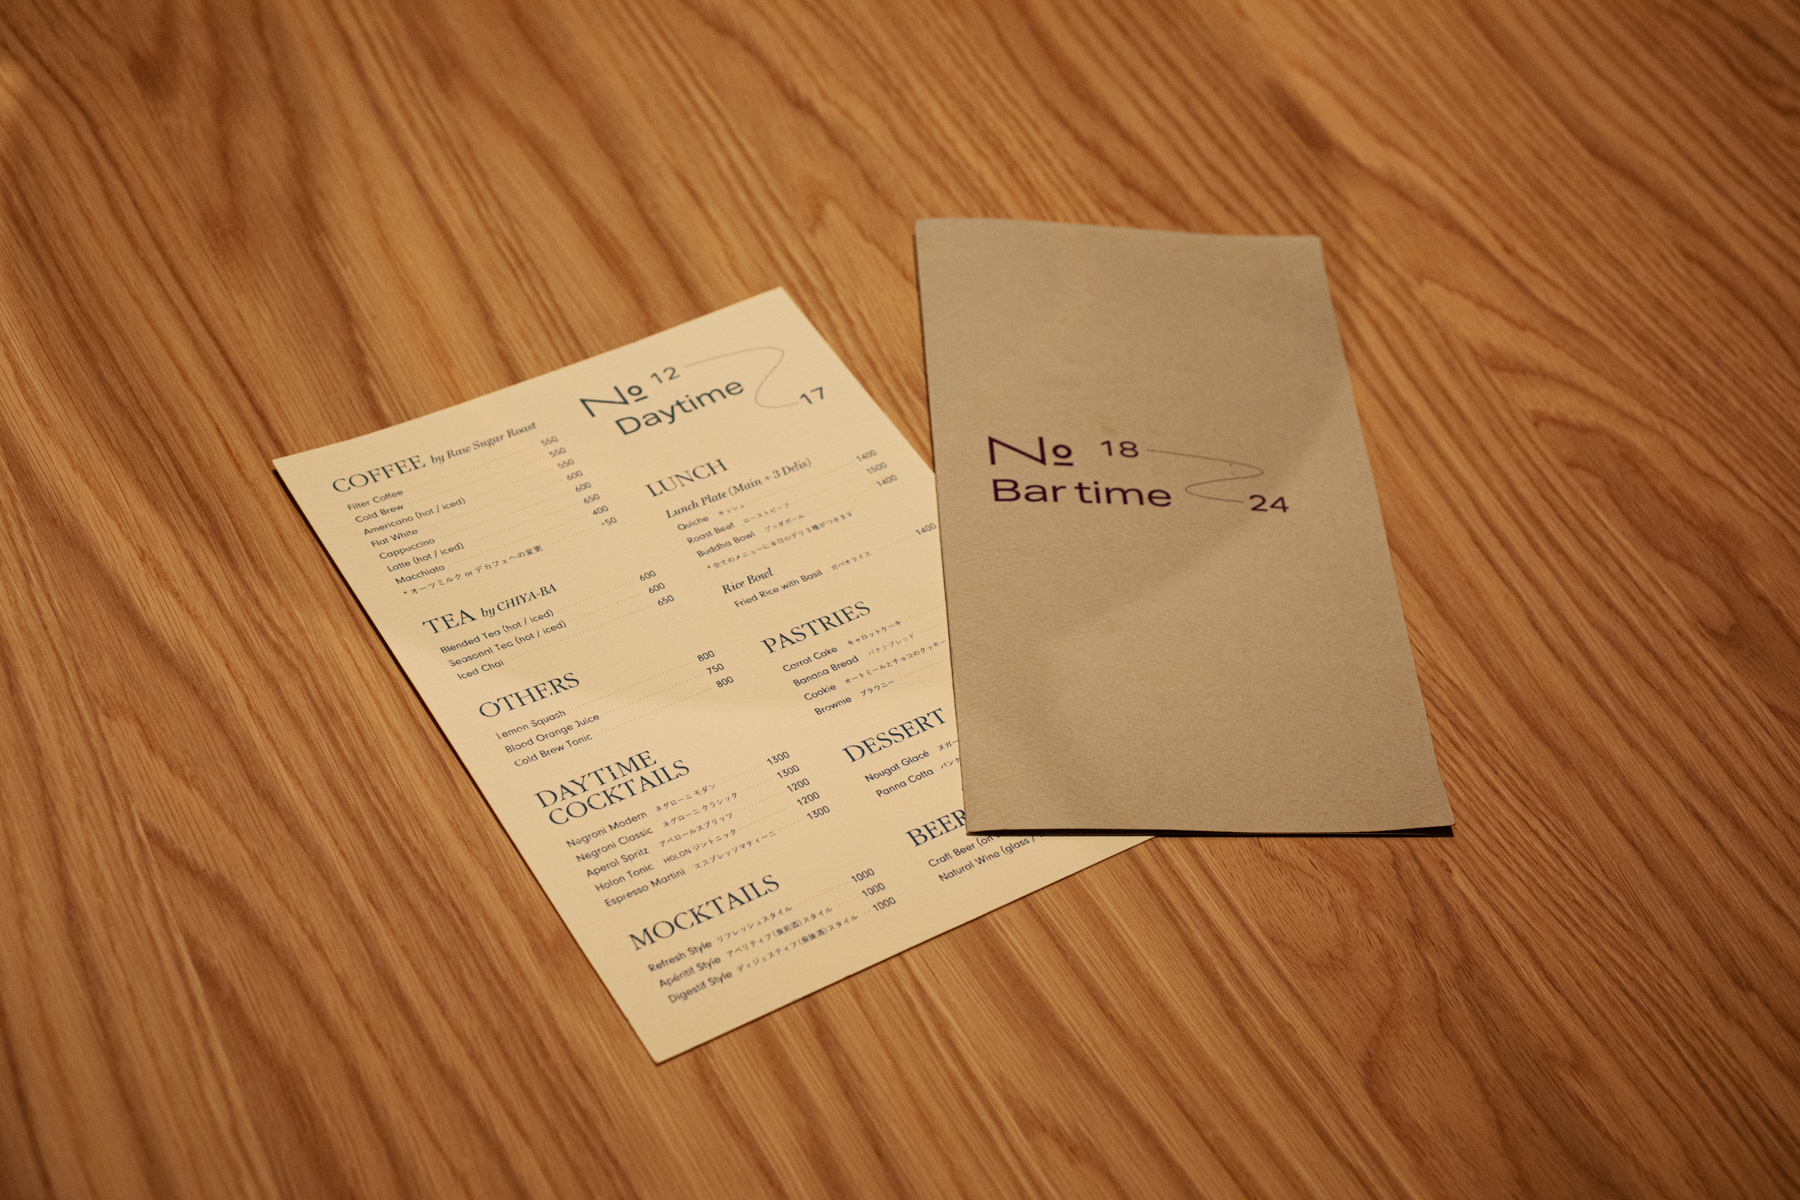 No 12
Daytime 17
COFFEE by Raw Sugar Roast
Filter Coffee 550
Cold Brew 550
Americano (hot / iced) 550
Flat White 600
Cappuccino 600
Latte (hot / iced) 650
Macchiato 400
* オーツミルク or デカフェへの変更 +50
TEA by CHIYA-BA
Blended Tea (hot / iced) 600
Seasonal Tea (hot / iced) 600
Iced Chai 650
OTHERS
Lemon Squash 800
Blood Orange Juice 750
Cold Brew Tonic 800
DAYTIME
COCKTAILS
Negroni Modern ネグローニ モダン 1300
Negroni Classic ネグローニ クラシック 1300
Aperol Spritz アペロールスプリッツ 1200
Holon Tonic HOLON ジントニック 1200
Espresso Martini エスプレッソマティーニ 1300
MOCKTAILS
Refresh Style リフレッシュスタイル 1000
Apéritif Style アペリティフ(食前酒)スタイル 1000
Digestif Style ディジェスティフ(食後酒)スタイル 1000
LUNCH
Lunch Plate (Main + 3 Delis)
Quiche キッシュ 1400
Roast Beef ローストビーフ 1500
Buddha Bowl ブッダボール 1400
* 全てのメニューに本日のデリ3種がつきます
Rice Bowl
Fried Rice with Basil ガパオライス 1400
PASTRIES
Carrot Cake キャロットケーキ
Banana Bread バナナブレッド
Cookie オートミールとチョコのクッキー
Brownie ブラウニー
DESSERT
Nougat Glacé ヌガー
Panna Cotta パンナ
BEER
Craft Beer (on
Natural Wine (glass /
No 18
Bar time 24